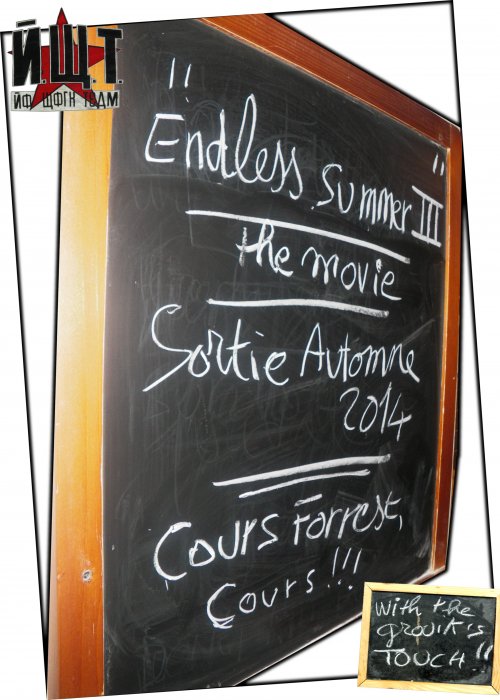 Й.Щ.Т.
ЙФ ЩФГН TEAM
"Endless Summer III"
the movie
Sortie Automne
2014
Cours Forrest,
Cours!!!
with the
grouik's
TOUCH!!